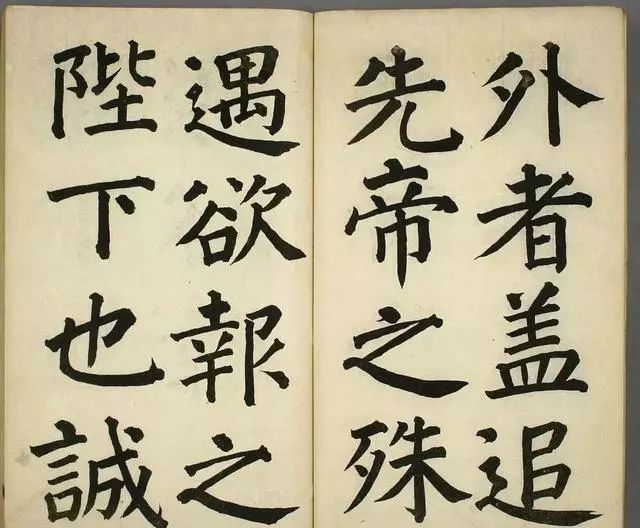 外者盖追
先帝之殊
遇欲報之
陛下也誠